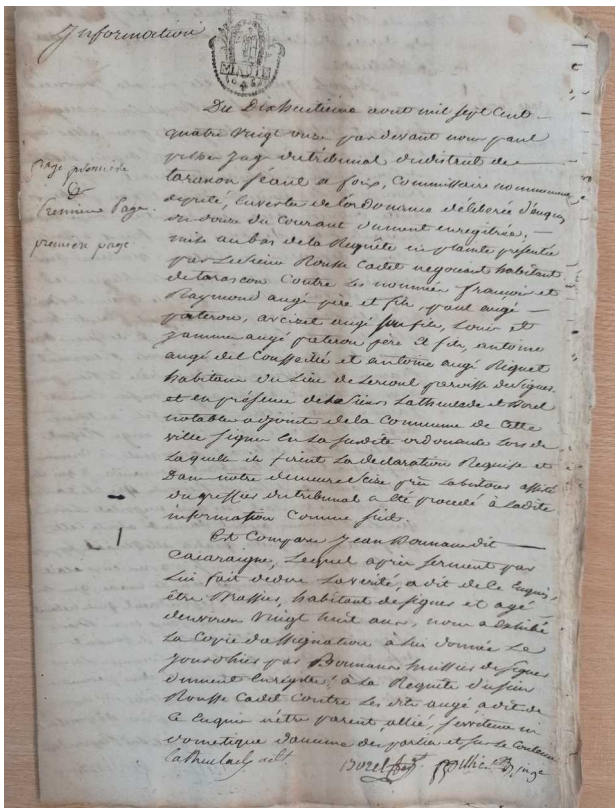 Information
Du Dixhuitieme aout mil sept Cent
quatre Vingt onze par devant nous paul
juge du tribunal du district de
tarascon séant a foix, Commissaire nommé
deputé, En vertu de lordonnance délibérée
du douze du Courant dument enregistrée,
mise au bas de la Requête en plainte présentée
par Le sieur Rousse Cadet negociant habitant
de tarascon Contre les nommés françois et
Raymond augé père et fils, paul augé
pateron, arcizet augé son fils, Louis et
jamme augé pateron père et fils, antoine
augé del Couffeillé et antoine augé Riquet
habitans du Lieu de Lercoul paroisse de Siguer
et en présence de Sieurs Latheulade et Borel
notables adjoints de la Commune de Cette
ville signés En La susdite ordonnance Lors de
Laquelle ils firent La declaration Requise et
Dans notre demeure assisté
du greffier du tribunal a été procédé à Ladite
information Comme suit.
page première
&
Première Page
première page
Est Comparu Jean Bonnans dit
Cacaraigne, Lequel après serment par
Lui fait de dire La vérité, a dit de Ce Enquis,
être Brassier, habitant de Siguer et agé
denviron Vingt huit ans, nous a exhibé
La Copie dassignation à Lui donnée Le
jour dhier par Bonnans huissier de Siguer
dument Enregistré, à La Requête du sieur
Rousse Cadet Contre Les dits augé, a dit de
Ce Enquis n'être parent, allié, serviteur ni
domestique daucune des parties et sur Le Contenu
Borel adj. juge